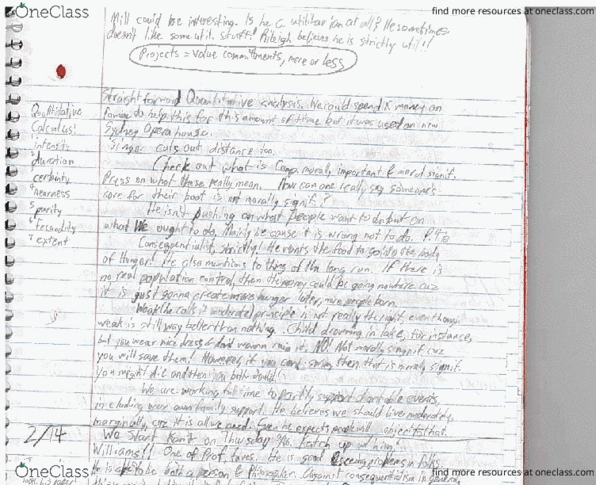 OneClass
find more resources at oneclass.com
Mill could be interesting. Is he a utilitarian at all? He sometimes
doesn't like some util. stuff! believes he is strictly util!
Projects = value commitments, more or less
Straightforward Quantitative analysis. We could spend X money on
to help this for this amount of time but it was used on new
Sydney Opera house.
Singer cuts out distance too.
Check out what is Comp. morally important & moral signif.
Press on what these really mean. How can one really say someone's
care for their boat is not morally signif?
He isn't pushing on what people want to do but on
what We ought to do, mainly because it is wrong not to do.
Quantitative
Calculus:
intensity
duration
certainty
nearness
purity
fecundity
extent
Consequentialist, strictly! He wants the food to go into the body
of Hunger! He also mentions to thing of the long run. If there is
no real population control, then the money could be going nowhere cuz
it is just gonna create more hunger later, more people born.
Weak (he calls it moderate) principle is not really the right, even though
weak is still way better than nothing. Child drowning in lake, for instance,
but you wear nice dress & don't wanna ruin it, NO! Not morally signif cuz
you will save them! However, if you can't swim then that is morally signif.
You might die and then both would!
We are working full time to partly support charitable events,
including poor family support. He believes we should live moderately,
marginally, cuz it is all we need. Even he expects people will
2/14
We Start Kant on Thursday 2/16. Catch up w/ him!
Williams!! One of Prof. favs. He is good @ seeing problems in folks
he is able to be both a person & Philosopher. Against consequentialism in general,
OneClass
find more resources at oneclass.com